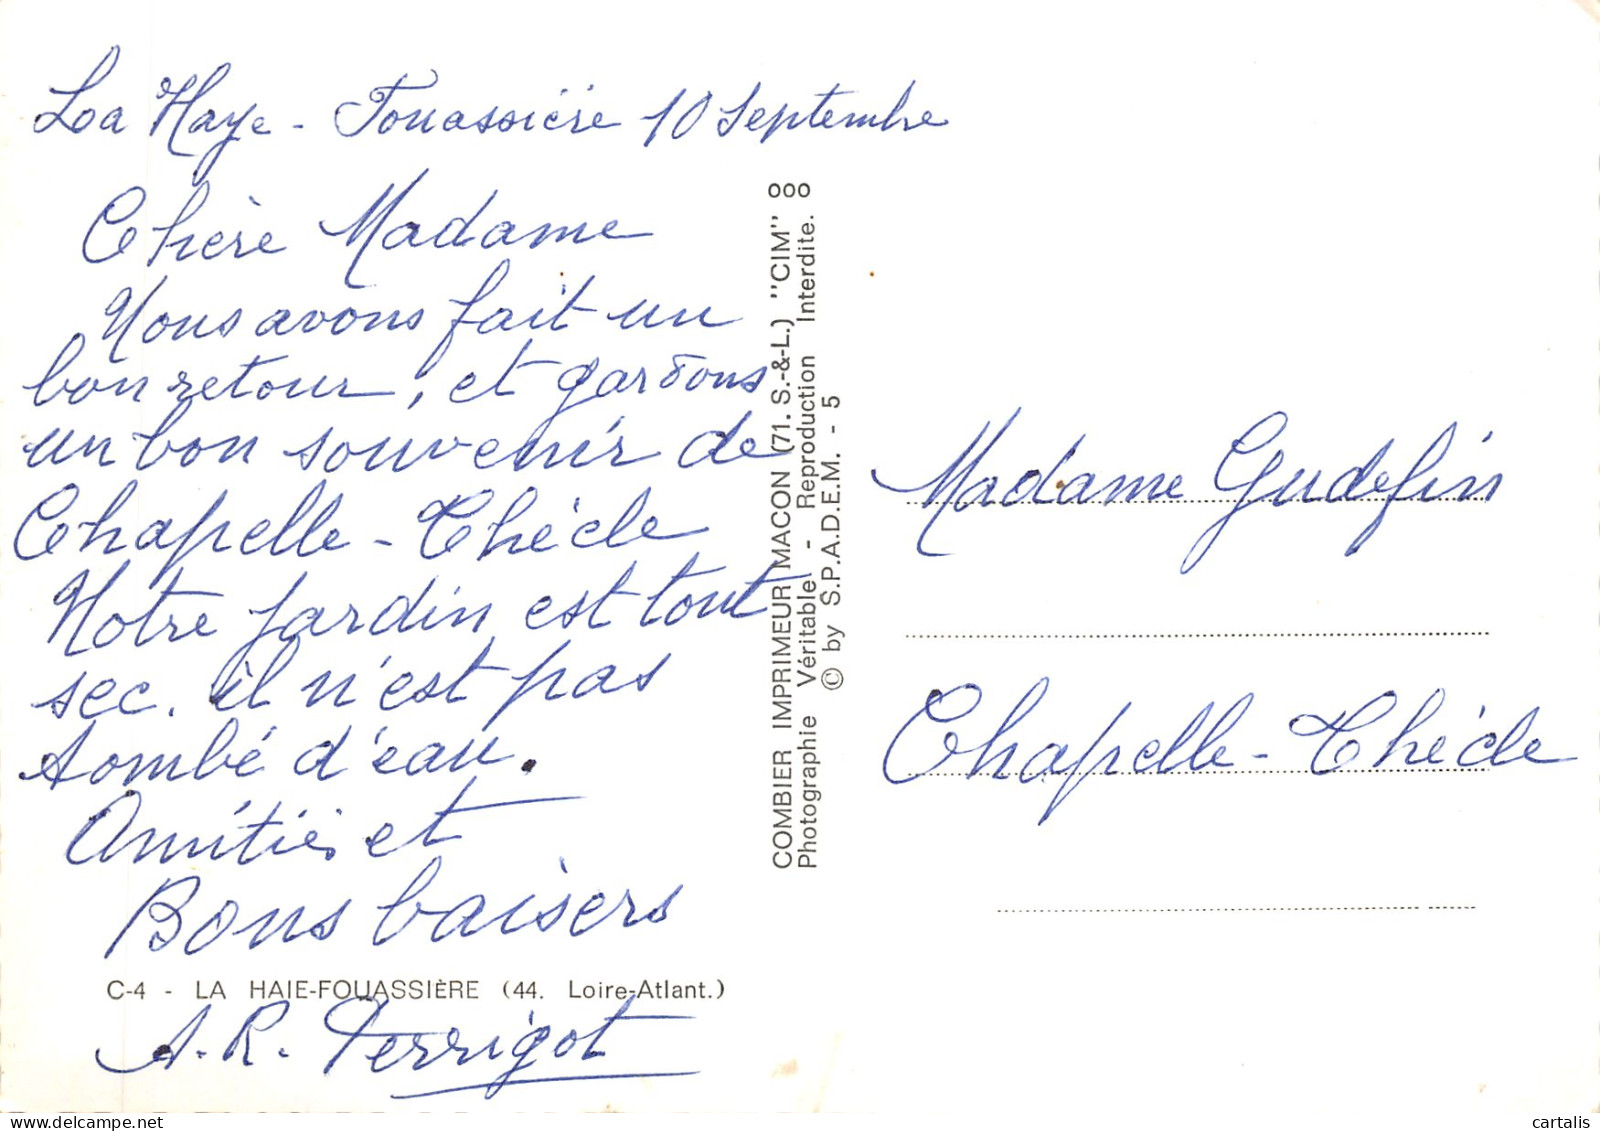 La Haye - Fouassière 10 Septembre
Chère Madame
Nous avons fait un
bon retour, et gardons
un bon souvenir de
Chapelle-Thècle
Notre jardin est tout
sec. il n'est pas
tombé d'eau.
Amitiés et
Bons baisers
C-4 - LA HAIE-FOUASSIÈRE (44. Loire-Atlant.)
A.R. Perrigot
COMBIER IMPRIMEUR MACON (71. S.-&-L.) "CIM" 000
Photographie Véritable - Reproduction Interdite.
© by S.P.A.D.E.M. - 5
Madame Gudefin
Chapelle-Thècle
cartalis